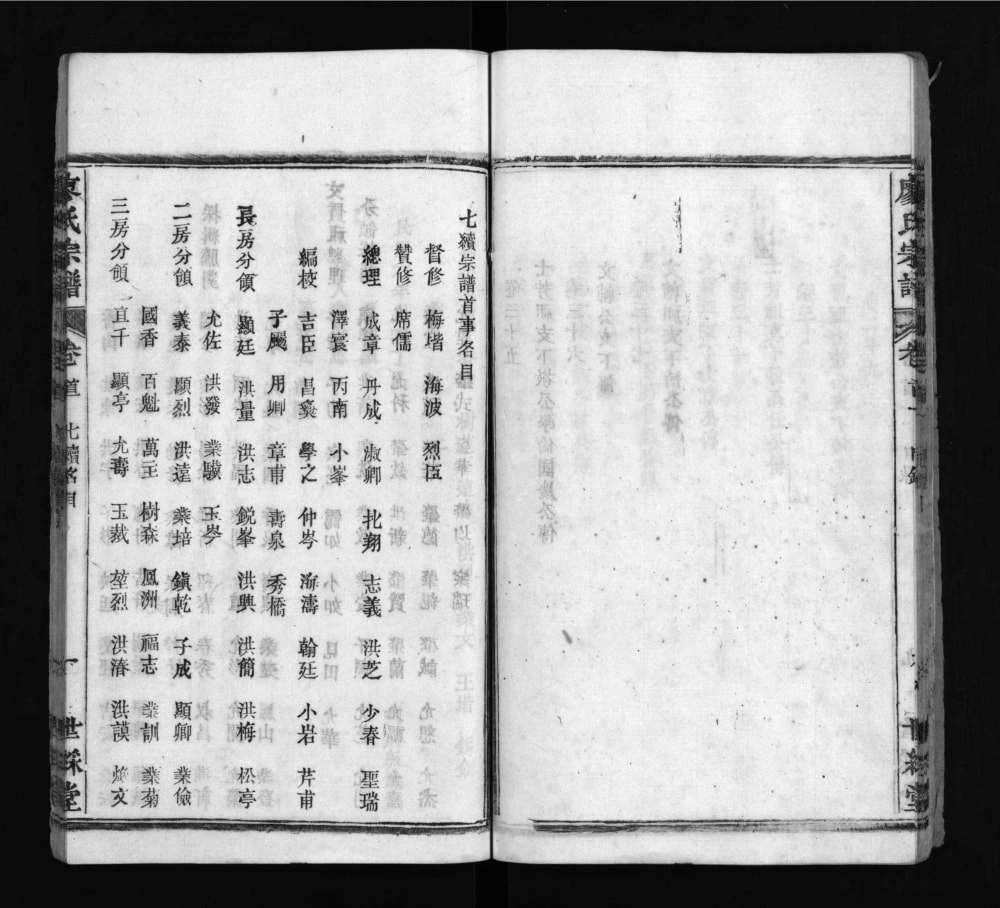 七續宗譜首事名目
督修 梅堦 海波 烈臣
贊修 席儒
總理 成章 丹成 淑卿 北翔 志義 洪芝 少春 聖瑞
澤寰 丙南 小峯
編校 吉臣 昌奏 學之 仲岑 海濤 翰廷 小岩 芹甫
子颺 用卿 章甫 壽泉 秀橋
長房分領 顯廷 洪量 洪志 鋭峯 洪興 洪簡 洪梅 松亭
允佐 洪發 業駿 玉岑
二房分領 義泰 顯烈 洪遠 業培 鎮乾 子成 顯卿 業儉
國香 百魁 萬玉 樹森 鳳洲 福志 業訓 業菊
三房分領 宜千 顯亭 允壽 玉裁 堃烈 洪湷 洪謨 煥文
氏宗譜 卷首 七續名目 一 世綵堂
廖氏宗譜 卷首 目錄